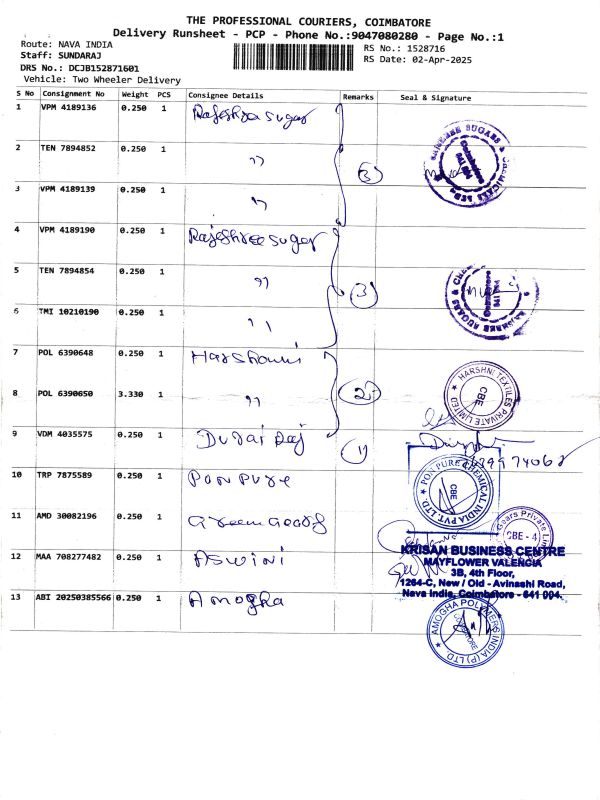 THE PROFESSIONAL COURIERS, COIMBATORE
Delivery Runsheet - PCP - Phone No.:9047080280 - Page No.:1
Route: NAVA INDIA
RS No.: 1528716
Staff: SUNDARAJ
RS Date: 02-Apr-2025
DRS No.: DCJB152871601
Vehicle: Two Wheeler Delivery
S No Consignment No Weight PCS Consignee Details Remarks Seal & Signature
1 VPM 4189136 0.250 1 Rajeshree sugar
2 TEN 7894852 0.250 1 ,,
3 VPM 4189139 0.250 1 ,,
(3)
4 VPM 4189190 0.250 1 Rajeshree sugar
5 TEN 7894854 0.250 1 ,,
(3)
6 TMI 10210190 0.250 1 ,,
7 POL 6390648 0.250 1 Harshani
8 POL 6390650 3.330 1 ,,
(2)
HARSHNI TEXTILES PRIVATE LIMITED
CBE
9 VDM 4035575 0.250 1 Durai Raj (1)
10 TRP 7875589 0.250 1 Pon Pure
PON PURE CHEMICAL INDIA PVT. LTD.
CBE
11 AMD 30082196 0.250 1
Gears Private
CBE - 4
12 MAA 708277482 0.250 1 Aswini
KRISAN BUSINESS CENTRE
MAYFLOWER VALENCIA
3B, 4th Floor,
1264-C, New / Old - Avinashi Road,
Nava India, Coimbatore - 641 004.
13 ABI 20250385566 0.250 1 Amogha
AMOGHA POLYMERS INDIA (P) LTD.
COIMBATORE